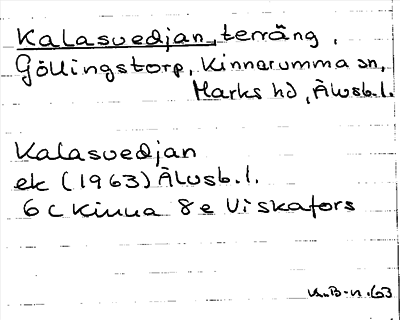 Kalasvedjan, terräng,
Göllingstorp, Kinnarumma sn,
Marks hd, Älvsb.l.
Kalasvedjan
ek (1963) Älvsb.l.
6 C Kinna 8 e Viskafors